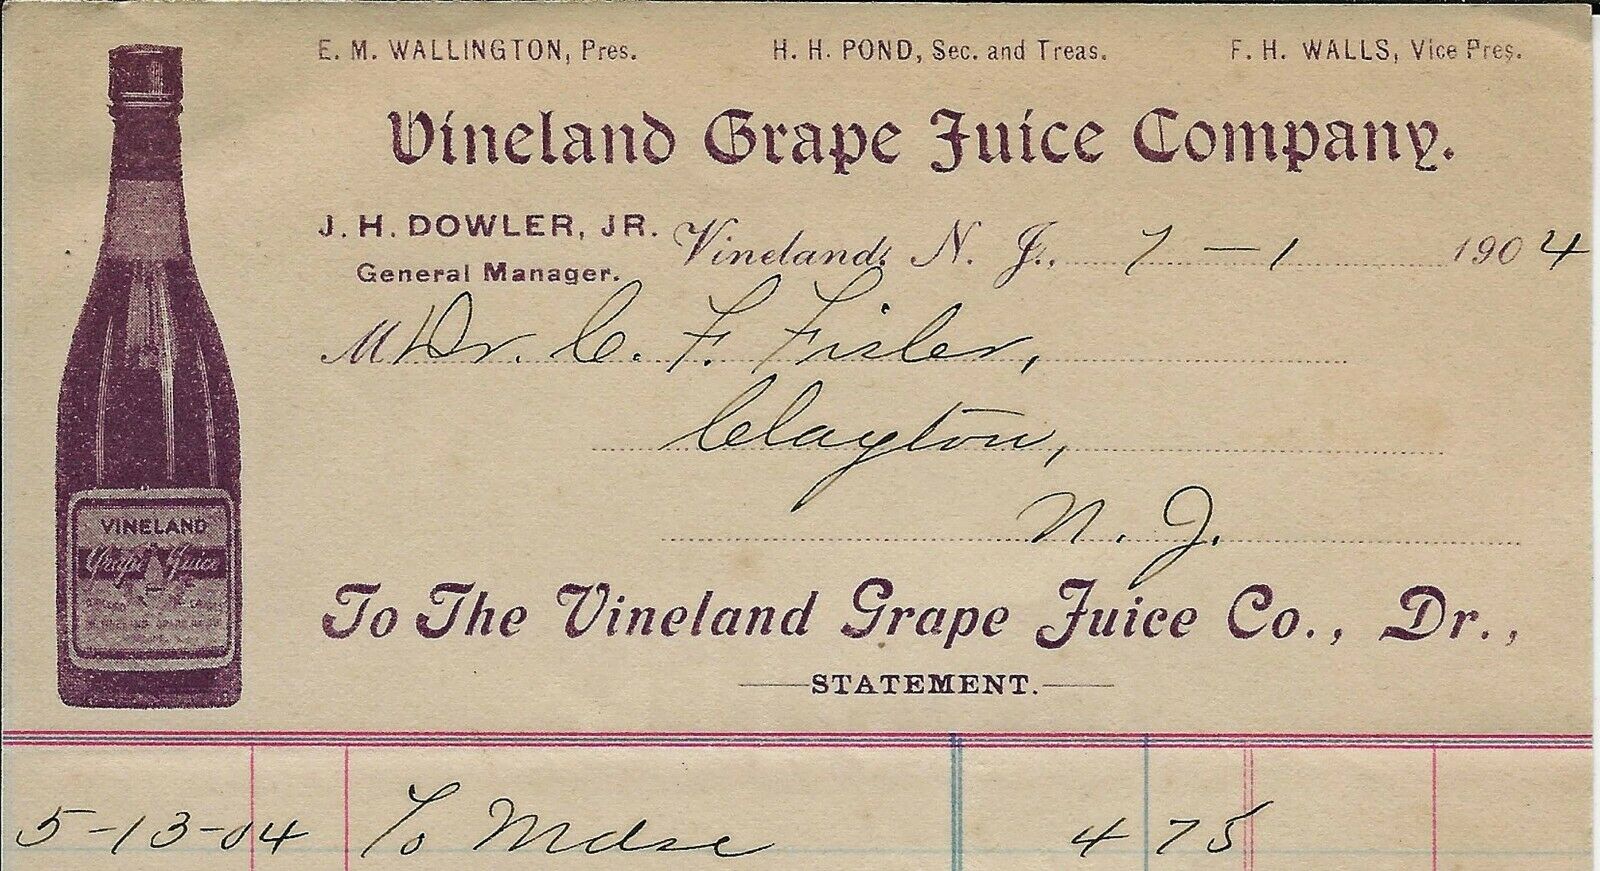 E. M. WALLINGTON, Pres. H. H. POND, Sec. and Treas. F. H. WALLS, Vice Pres.
Vineland Grape Juice Company.
J. H. DOWLER, JR.
General Manager.
Vineland, N. J., 7 – 1 1904
M Dr. C. F. Fisler,
Clayton,
N. J.
To The Vineland Grape Juice Co., Dr.,
STATEMENT.
5-13-04 To Mdse 4 75
VINELAND
Grape Juice